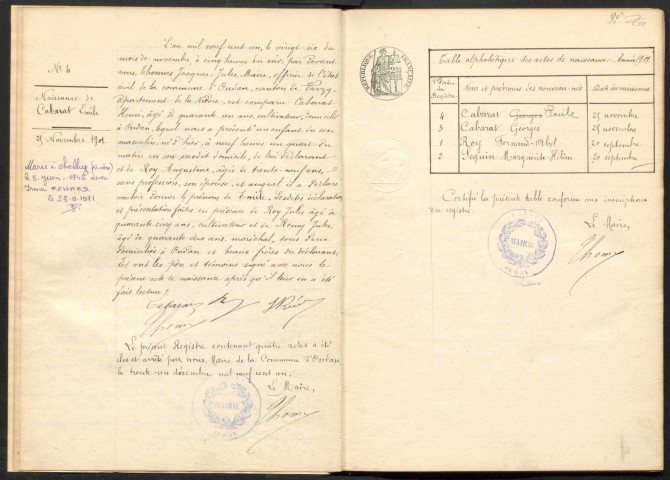 N° 4
Naissance de
Cabarat Emile
25 Novembre 1901.
Marié à Challuy (Nièvre)
le 5 juin 1942 avec
Irma
le 23-6-1971
L'an mil neuf cent un, le vingt six du
mois de novembre, à cinq heures du soir, par devant
nous, Thomas Jacques-Jules, Maire, officier de l'état
civil de la commune d'Oudan, canton de Varzy,
département de la Nièvre, est comparu Cabarat
Henri, âgé de quarante un ans, cultivateur, domicilié
à Oudan, lequel nous a présenté un enfant du sexe
masculin, né d'hier, à neuf heures un quart du
matin en son susdit domicile, de lui déclarant
et de Roy Augustine, âgée de trente-neuf ans,
sans profession, son épouse, et auquel il a déclaré
vouloir donner le prénom de Emile. Lesdites déclaration
et présentation faites en présence de Roy Jules âgé de
quarante cinq ans, cultivateur et de Remy Jules,
âgé de quarante deux ans, maréchal, tous deux
domiciliés à Oudan et beaux frères du déclarant.
Et ont les père et témoins signé avec nous le
présent acte de naissance après qu'il leur en a été
fait lecture.
Cabarat
Thomas
Le présent Registre contenant quatre actes a été
clos et arrêté par nous, Maire de la Commune d'Oudan,
le trente-un décembre mil neuf cent un.
Le Maire,
MAIRIE
Thomas
RÉPUBLIQUE FRANÇAISE
Table alphabétique des actes de naissance - Année 1901.
Noms et prénoms des nouveau-nés
Date des naissances
4 Cabarat Georges Emile 25 novembre
3 Cabarat Georges 25 novembre
1 Roy Fernand-Abel 20 septembre
2 Seguin Marguerite-Hélène 20 septembre
Certifié la présente table conforme aux inscriptions
du registre.
Le Maire,
MAIRIE
Thomas